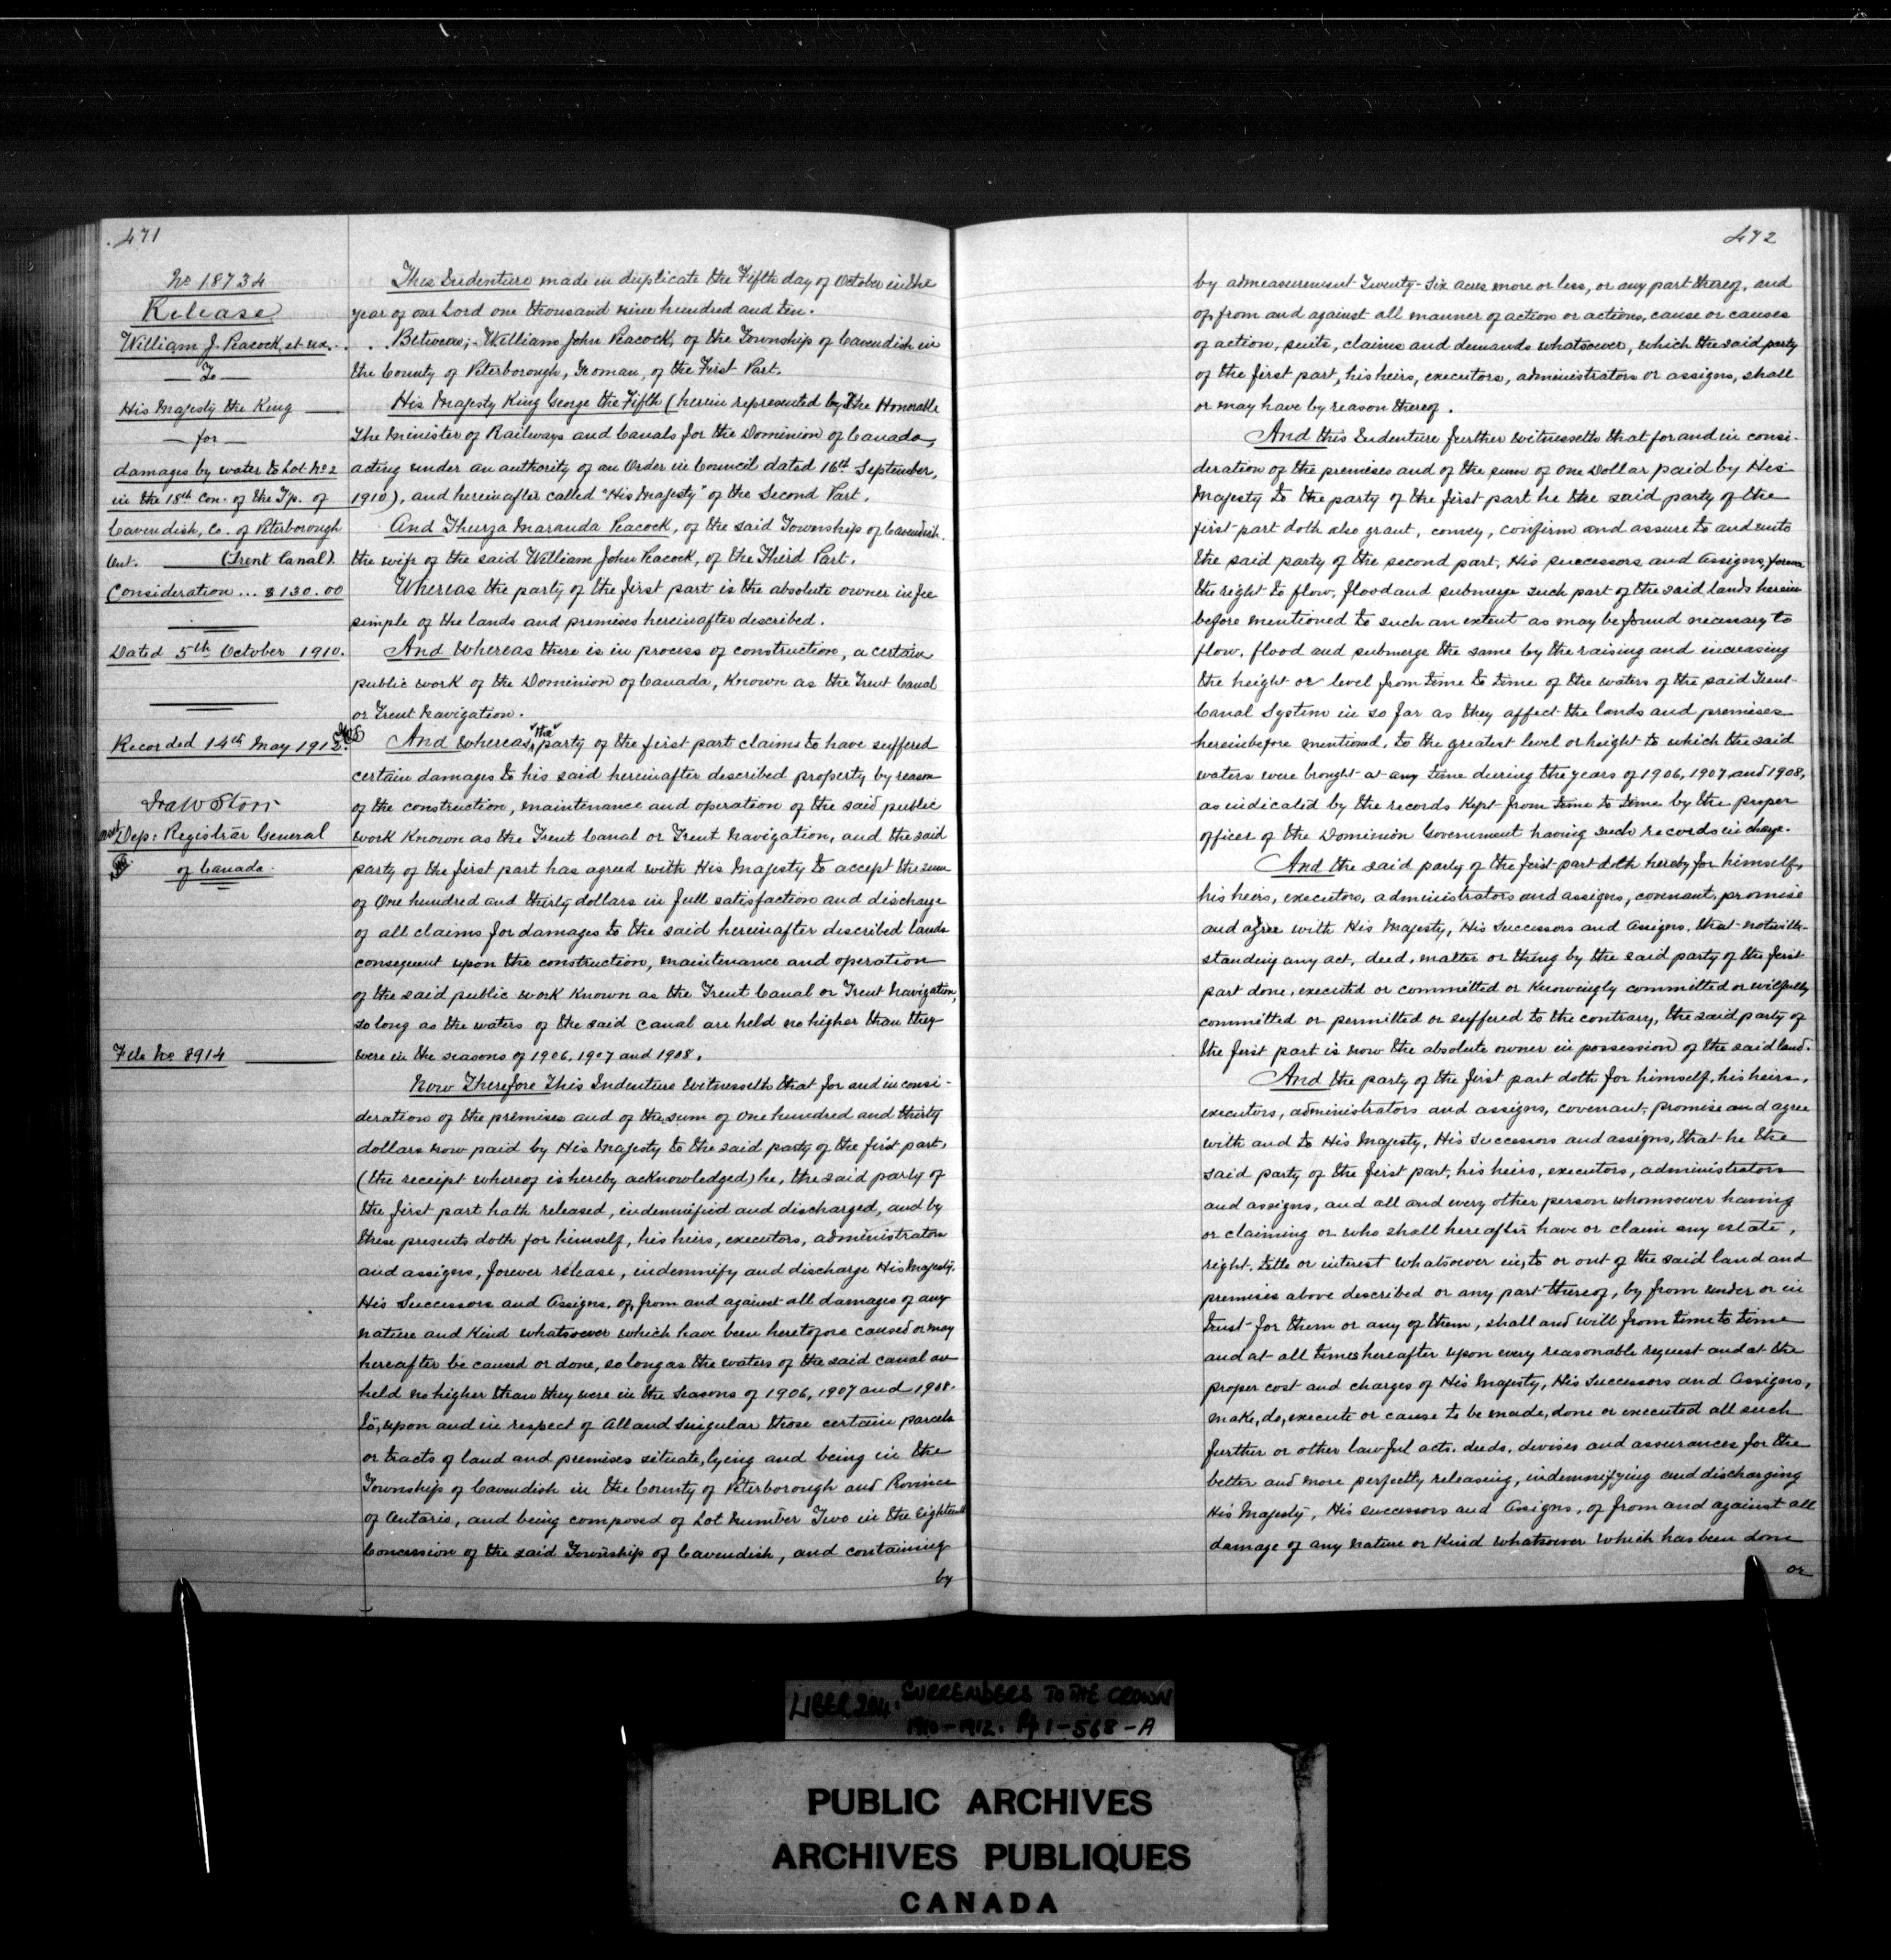 471
No 18734
Release
William J. Peacock, et ux.
— To —
His Majesty the King
— for —
damages by water to Lot No 2
in the 18th Con. of the Tp. of
Cavendish, Co. of Peterborough
Ont. (Trent Canal).
Consideration ... $130.00
Dated 5th October 1910.
Recorded 14th May 1912.
Dep: Registrar General
of Canada.
File No 8914
This Indenture made in duplicate the Fifth day of October in the
year of our Lord one thousand nine hundred and ten.
Between;- William John Peacock, of the Township of Cavendish in
the County of Peterborough, Yeoman, of the First Part.
His Majesty King George the Fifth (herein represented by The Honorable
The Minister of Railways and Canals for the Dominion of Canada,
acting under an authority of an Order in Council dated 16th September,
1910), and hereinafter called "His Majesty" of the Second Part.
And Thurza Maranda Peacock, of the said Township of Cavendish.
the wife of the said William John Peacock, of the Third Part.
Whereas the party of the first part is the absolute owner in fee
simple of the lands and premises hereinafter described.
And Whereas there is in process of construction, a certain
public work of the Dominion of Canada, Known as the Trent Canal
or Trent Navigation.
And Whereas the party of the first part claims to have suffered
certain damages to his said hereinafter described property by reason
of the construction, maintenance and operation of the said public
work Known as the Trent Canal or Trent Navigation, and the said
party of the first part has agreed with His Majesty to accept the sum
of One hundred and thirty dollars in full satisfaction and discharge
of all claims for damages to the said hereinafter described lands
consequent upon the construction, maintenance and operation
of the said public work Known as the Trent Canal or Trent Navigation,
so long as the waters of the said canal are held no higher than they
were in the seasons of 1906, 1907 and 1908.
Now Therefore This Indenture Witnesseth that for and in consi-
deration of the premises and of the sum of One hundred and thirty
dollars now paid by His Majesty to the said party of the first part,
(the receipt whereof is hereby acknowledged) he, the said party of
the first part hath released, indemnified and discharged, and by
these presents doth for himself, his heirs, executors, administrators
and assigns, forever release, indemnify and discharge His Majesty,
His Successors and Assigns, of, from and against all damages of any
nature and Kind whatsoever which have been heretofore caused or may
hereafter be caused or done, so long as the waters of the said canal are
held no higher than they were in the Seasons of 1906, 1907 and 1908.
to, upon and in respect of All and Singular those certain parcels
or tracts of land and premises situate, lying and being in the
Township of Cavendish in the County of Peterborough and Province
of Ontario, and being composed of Lot Number Two in the Eighteenth
Concession of the said Township of Cavendish, and containing
by
472
by admeasurement Twenty-Six acres more or less, or any part thereof, and
of, from and against all manner of action or actions, cause or causes
of action, suits, claims and demands whatsoever, which the said party
of the first part, his heirs, executors, administrators or assigns, shall
or may have by reason thereof.
And this Indenture further witnesseth that for and in consi-
deration of the premises and of the sum of One Dollar paid by His
Majesty to the party of the first part he the said party of the
first part doth also grant, convey, confirm and assure to and unto
the said party of the second part, His Successors and Assigns, forever
the right to flow, flood and submerge such part of the said lands herein
before mentioned to such an extent as may be found necessary to
flow, flood and submerge the same by the raising and increasing
the height or level from time to time of the waters of the said Trent
Canal System in so far as they affect the lands and premises
hereinbefore mentioned, to the greatest level or height to which the said
waters were brought at any time during the years of 1906, 1907 and 1908,
as indicated by the records Kept from time to time by the proper
officer of the Dominion Government having such records in charge.
And the said party of the first part doth hereby for himself,
his heirs, executors, administrators and assigns, covenant, promise
and agree with His Majesty, His Successors and Assigns, that notwith-
standing any act, deed, matter or thing by the said party of the first
part done, executed or committed or Knowingly committed or wilfully
committed or permitted or suffered to the contrary, the said party of
the first part is now the absolute owner in possession of the said land.
And the party of the first part doth for himself, his heirs,
executors, administrators and assigns, covenant, promise and agree
with and to His Majesty, His Successors and assigns, that he the
said party of the first part, his heirs, executors, administrators
and assigns, and all and every other person whomsoever having
or claiming or who shall hereafter have or claim any estate,
right, title or interest whatsoever in, to or out of the said land and
premises above described or any part thereof, by from under or in
trust for them or any of them, shall and will from time to time
and at all times hereafter upon every reasonable request and at the
proper cost and charges of His Majesty, His Successors and Assigns,
make, do, execute or cause to be made, done or executed all such
further or other lawful acts, deeds, devises and assurances for the
better and more perfectly releasing, indemnifying and discharging
His Majesty, His successors and Assigns, of from and against all
damage of any nature or Kind whatsoever which has been done
or
LIBER 204: SURRENDERS TO THE CROWN
1910-1912. Pp 1-568-A
PUBLIC ARCHIVES
ARCHIVES PUBLIQUES
CANADA